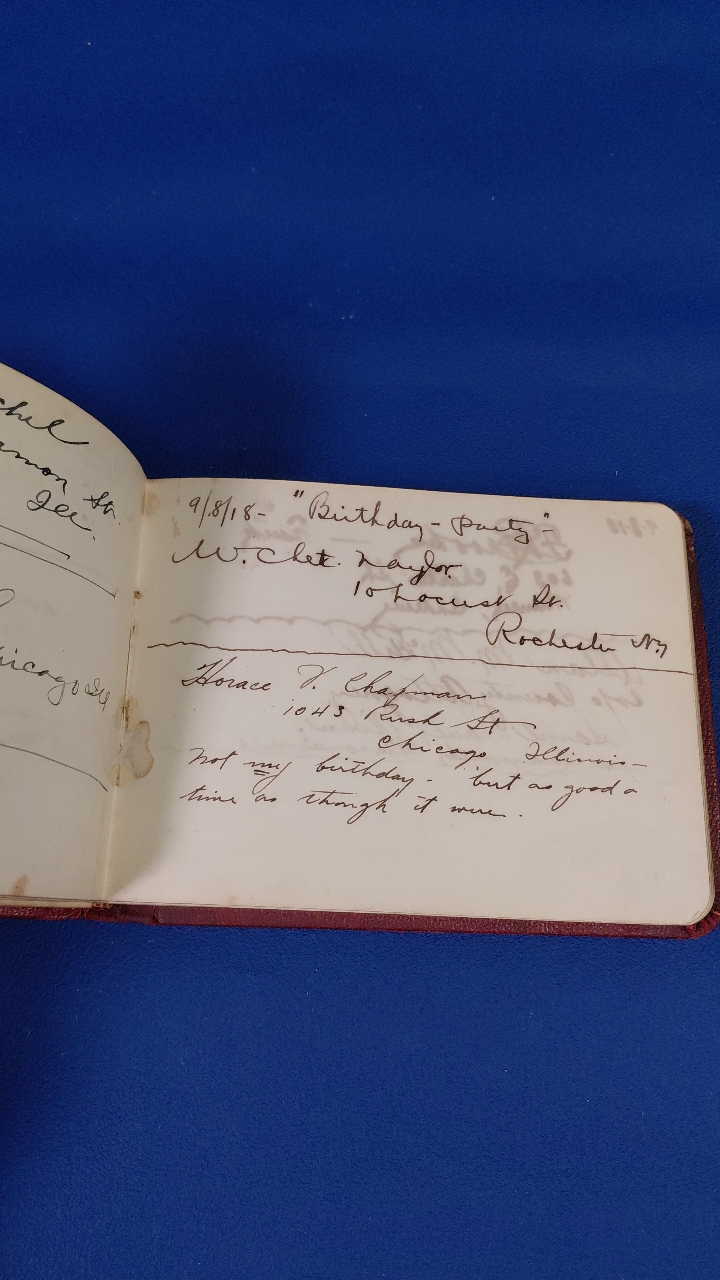 chel
amon St.
Ill.
hicago Ill
9/8/18- "Birthday - party"
W. Chet. Naylor.
10 Locust St.
Rochester NY
Horace V. Chapman
1043 Rush St
Chicago Illinois-
Not my birthday - but as good a
time as though it were.